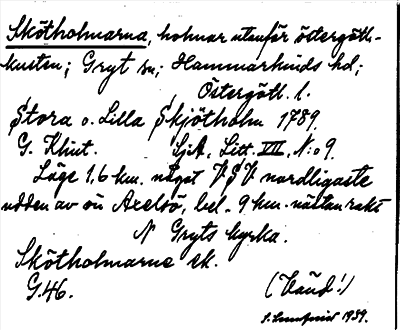 Skötholmarna, holmar utanför östergötl.-
kusten; Gryt sn; Hammarkinds hd;
Östergötl. l.
Stora o. Lilla Skjötholm 1789.
G. Klint. SjA, Litt. VII, N:o 9.
Läge 1,6 km. något VSV nordligaste
udden av ön Axelsö, bel. 9 km. nästan rakt
N Gryts kyrka.
Skötholmarne ek.
G.46. (Länd!)
1939.